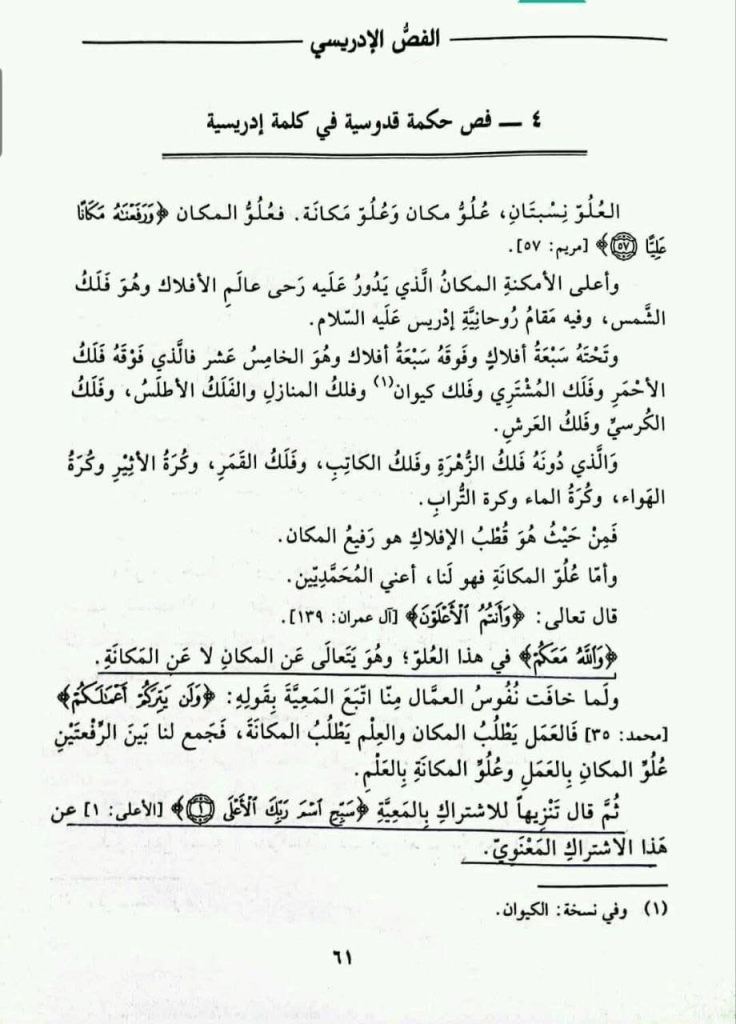 الفصُّ الإدريسي
٤ ــ فص حكمة قدوسية في كلمة إدريسية
العُلُوّ نِسْبتَانِ، عُلُوُّ مكان وَعُلُوّ مَكانَة. فعُلُوُّ المكان ﴿وَرَفَعْنَٰهُ مَكَانًا
عَلِيًّا ٥٧﴾ [مريم: ٥٧].
وأعلى الأمكنةِ المكانُ الَّذي يَدُورُ عَلَيه رَحى عالَمِ الأفلاك وهُوَ فَلَكُ
الشَّمس، وفيه مَقامُ رُوحانِيَّةِ إدْريس عَلَيه السّلام.
وتَحْتَهُ سَبْعَةُ أفلاكٍ وفَوقَهُ سَبْعَةُ أفلاك وهُوَ الخامِسُ عَشر فالَّذي فَوْقَهُ فَلَكُ
الأحْمَرِ وفَلَك المُشْتَرِي وفَلك كيوان(١) وفلكُ المنازلِ والفَلَكُ الأطلَسُ، وفَلَكُ
الكُرسيِّ وفَلكُ العَرشِ.
وَالَّذي دُونَهُ فَلكُ الزُّهْرَةِ وفَلكُ الكاتِبِ، وفَلَكُ القَمَرِ، وكُرَةُ الأثِيْرِ وكُرَةُ
الهَواء، وكُرَةُ الماء وكرة التُّرابِ.
فَمِنْ حَيْثُ هُوَ قُطْبُ الإفلاكِ هو رَفيعُ المكان.
وأمّا عُلُوّ المكانَةِ فهو لَنا، أعني المُحَمَّديّين.
قال تعالى: ﴿وَأَنتُمُ ٱلْأَعْلَوْنَ﴾ [آل عمران: ١٣٩].
﴿وَٱللَّهُ مَعَكُمْ﴾ في هذا العُلوّ؛ وهُوَ يَتَعالَى عَن المكانِ لا عَنِ المَكانَةِ.
ولَما خافَت نُفُوسُ العمَّال مِنّا اتّبَعَ المَعِيَّةَ بِقَولِهِ: ﴿وَلَن يَتِرَكُمْ أَعْمَٰلَكُمْ﴾
[محمد: ٣٥] فَالعَمَل يَطْلُبُ المكان والعِلْم يَطْلُبُ المكانَةَ، فَجَمع لنا بَينَ الرِّفْعتَيْنِ
عُلُوِّ المكانِ بِالعَمَلِ وعُلُوِّ المكانَةِ بِالعَلْمِ.
ثُمَّ قال تَنْزِيهاً للاشتراكِ بِالمَعِيَّةِ ﴿سَبِّحِ ٱسْمَ رَبِّكَ ٱلْأَعْلَى ١﴾ [الأعلى: ١] عن
هَذا الاشتراكِ المَعْنَويّ.
(١) وفي نسخة: الكيوان.
٦١